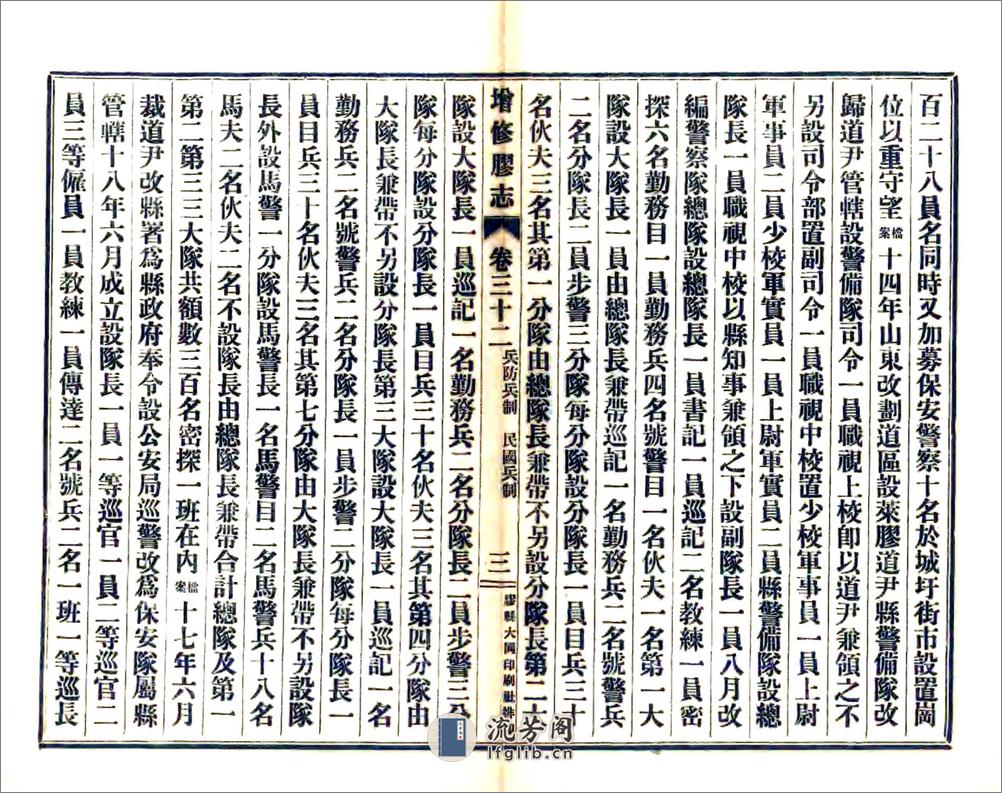 百二十八員名同時又加募保安警察十名於城圩街市設置崗
位以重守望檔案十四年山東改劃道區設萊膠道尹縣警備隊改
歸道尹管轄設警備隊司令一員職視上校卽以道尹兼領之不
另設司令部置副司令一員職視中校置少校軍事員一員上尉
軍事員二員少校軍實員一員上尉軍實員二員縣警備隊設總
隊長一員職視中校以縣知事兼領之下設副隊長一員八月改
編警察隊總隊設總隊長一員書記一員巡記二名教練一員密
探六名勤務目一員勤務兵四名號警目一名伙夫一名第一大
隊設大隊長一員由總隊長兼帶巡記一名勤務兵二名號警兵
二名分隊長二員步警三分隊每分隊設分隊長一員目兵三十
名伙夫三名其第一分隊由總隊長兼帶不另設分隊長第二大
增修膠志 卷三十二 兵防兵制 民國兵制 三 膠縣大同印刷社排
隊設大隊長一員巡記一名勤務兵二名分隊長二員步警三分
隊每分隊設分隊長一員目兵三十名伙夫三名其第四分隊由
大隊長兼帶不另設分隊長第三大隊設大隊長一員巡記一名
勤務兵二名號警兵二名分隊長一員步警二分隊每分隊長一
員目兵三十名伙夫三名其第七分隊由大隊長兼帶不另設隊
長外設馬警一分隊設馬警長一名馬警目二名馬警兵十八名
馬夫二名伙夫二名不設隊長由總隊長兼帶合計總隊及第一
第二第三三大隊共額數三百名密探一班在內檔案十七年六月
裁道尹改縣署爲縣政府奉令設公安局巡警改爲保安隊屬縣
管轄十八年六月成立設隊長一員一等巡官一員二等巡官二
員三等僱員一員教練一員傳達二名號兵二名一班一等巡長
流芳阁
lfglib.cn